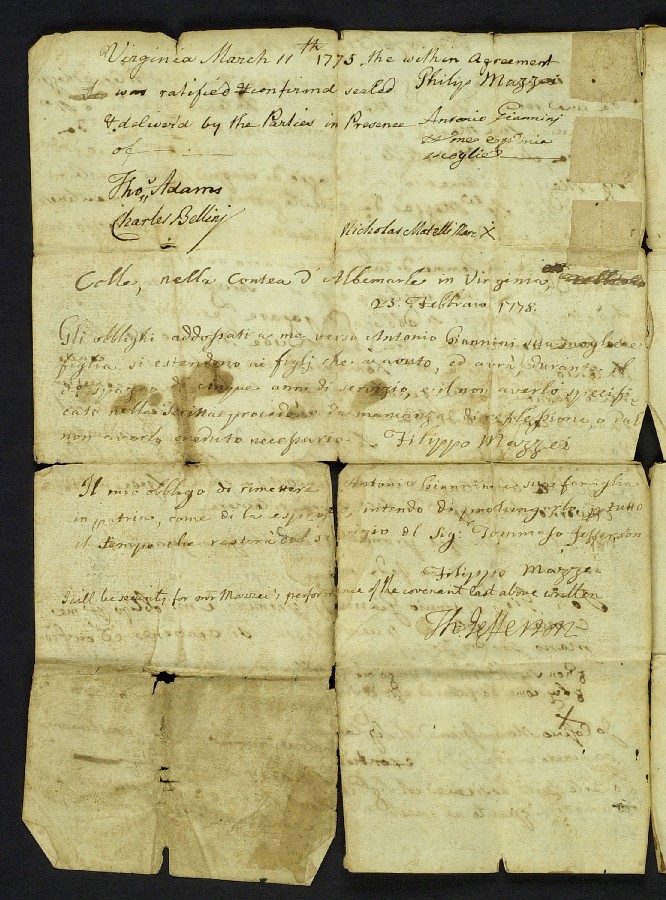 Virginia March 11th 1775 the within Agreement
was ratified & confirmd sealed Philip Mazzei
& deliver'd by the Parties in Presence Antonio Giannini
of
moglie
Thos Adams
Charles Bellini
Nicholas Mark X
Colle, nella Contea d'Albemarle in Virginia,
23. Febbraio 1778.
Gli obblighi addossati a me verso Antonio Giannini sua moglie e
figlia si estendono ai figlj che à avuto, ed avrà durante il
di cinque anni di servizio, e il non averlo specifi-
cati nella da mancanza di riflessione, o dal
non averlo creduto necessario. Filippo Mazzei
Il mio obbligo di rimettere Antonio Giannini e sua famiglia
in patria, come di là intendo di prolungarlo p tutto
il tempo che resterà dal servizio del Sigr Tommaso Jefferson
Filippo Mazzei
I will be security for mr Mazzei's performance of the covenant last above written
Th. Jefferson